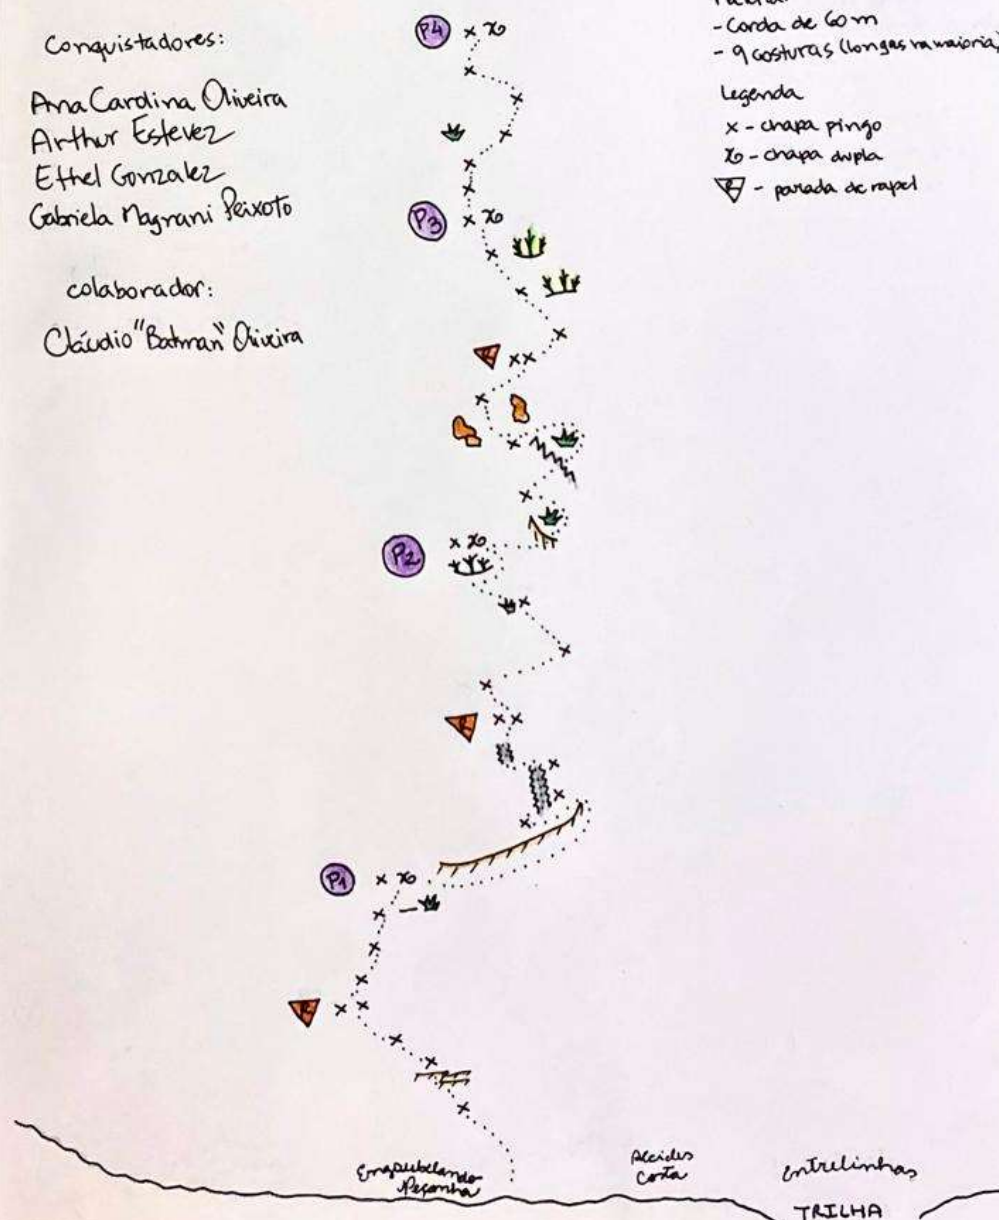 Conquistadores:
Ana Carolina Oliveira
Arthur Estevez
Ethel Gonzalez
Gabriela Magnani Peixoto
colaborador:
Cláudio "Batman" Oliveira
- Corda de 60m
- 9 costuras (longas na maioria)
Legenda
x - chapa pingo
- chapa dupla
R - parada de rapel
P4
P3
R
P2
R
P1
R
Peçanha
Alcides
Costa
Entrelinhas
TRILHA